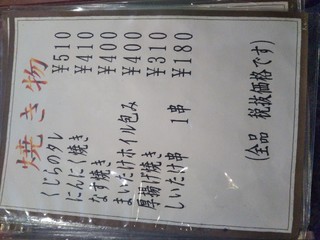 焼き物
くじらのタレ ￥510
にんにく焼き ￥410
なす焼き ￥400
まいたけホイル包み ￥400
厚揚げ焼き ￥310
しいたけ串 1串 ￥180
(全品 税抜価格です)